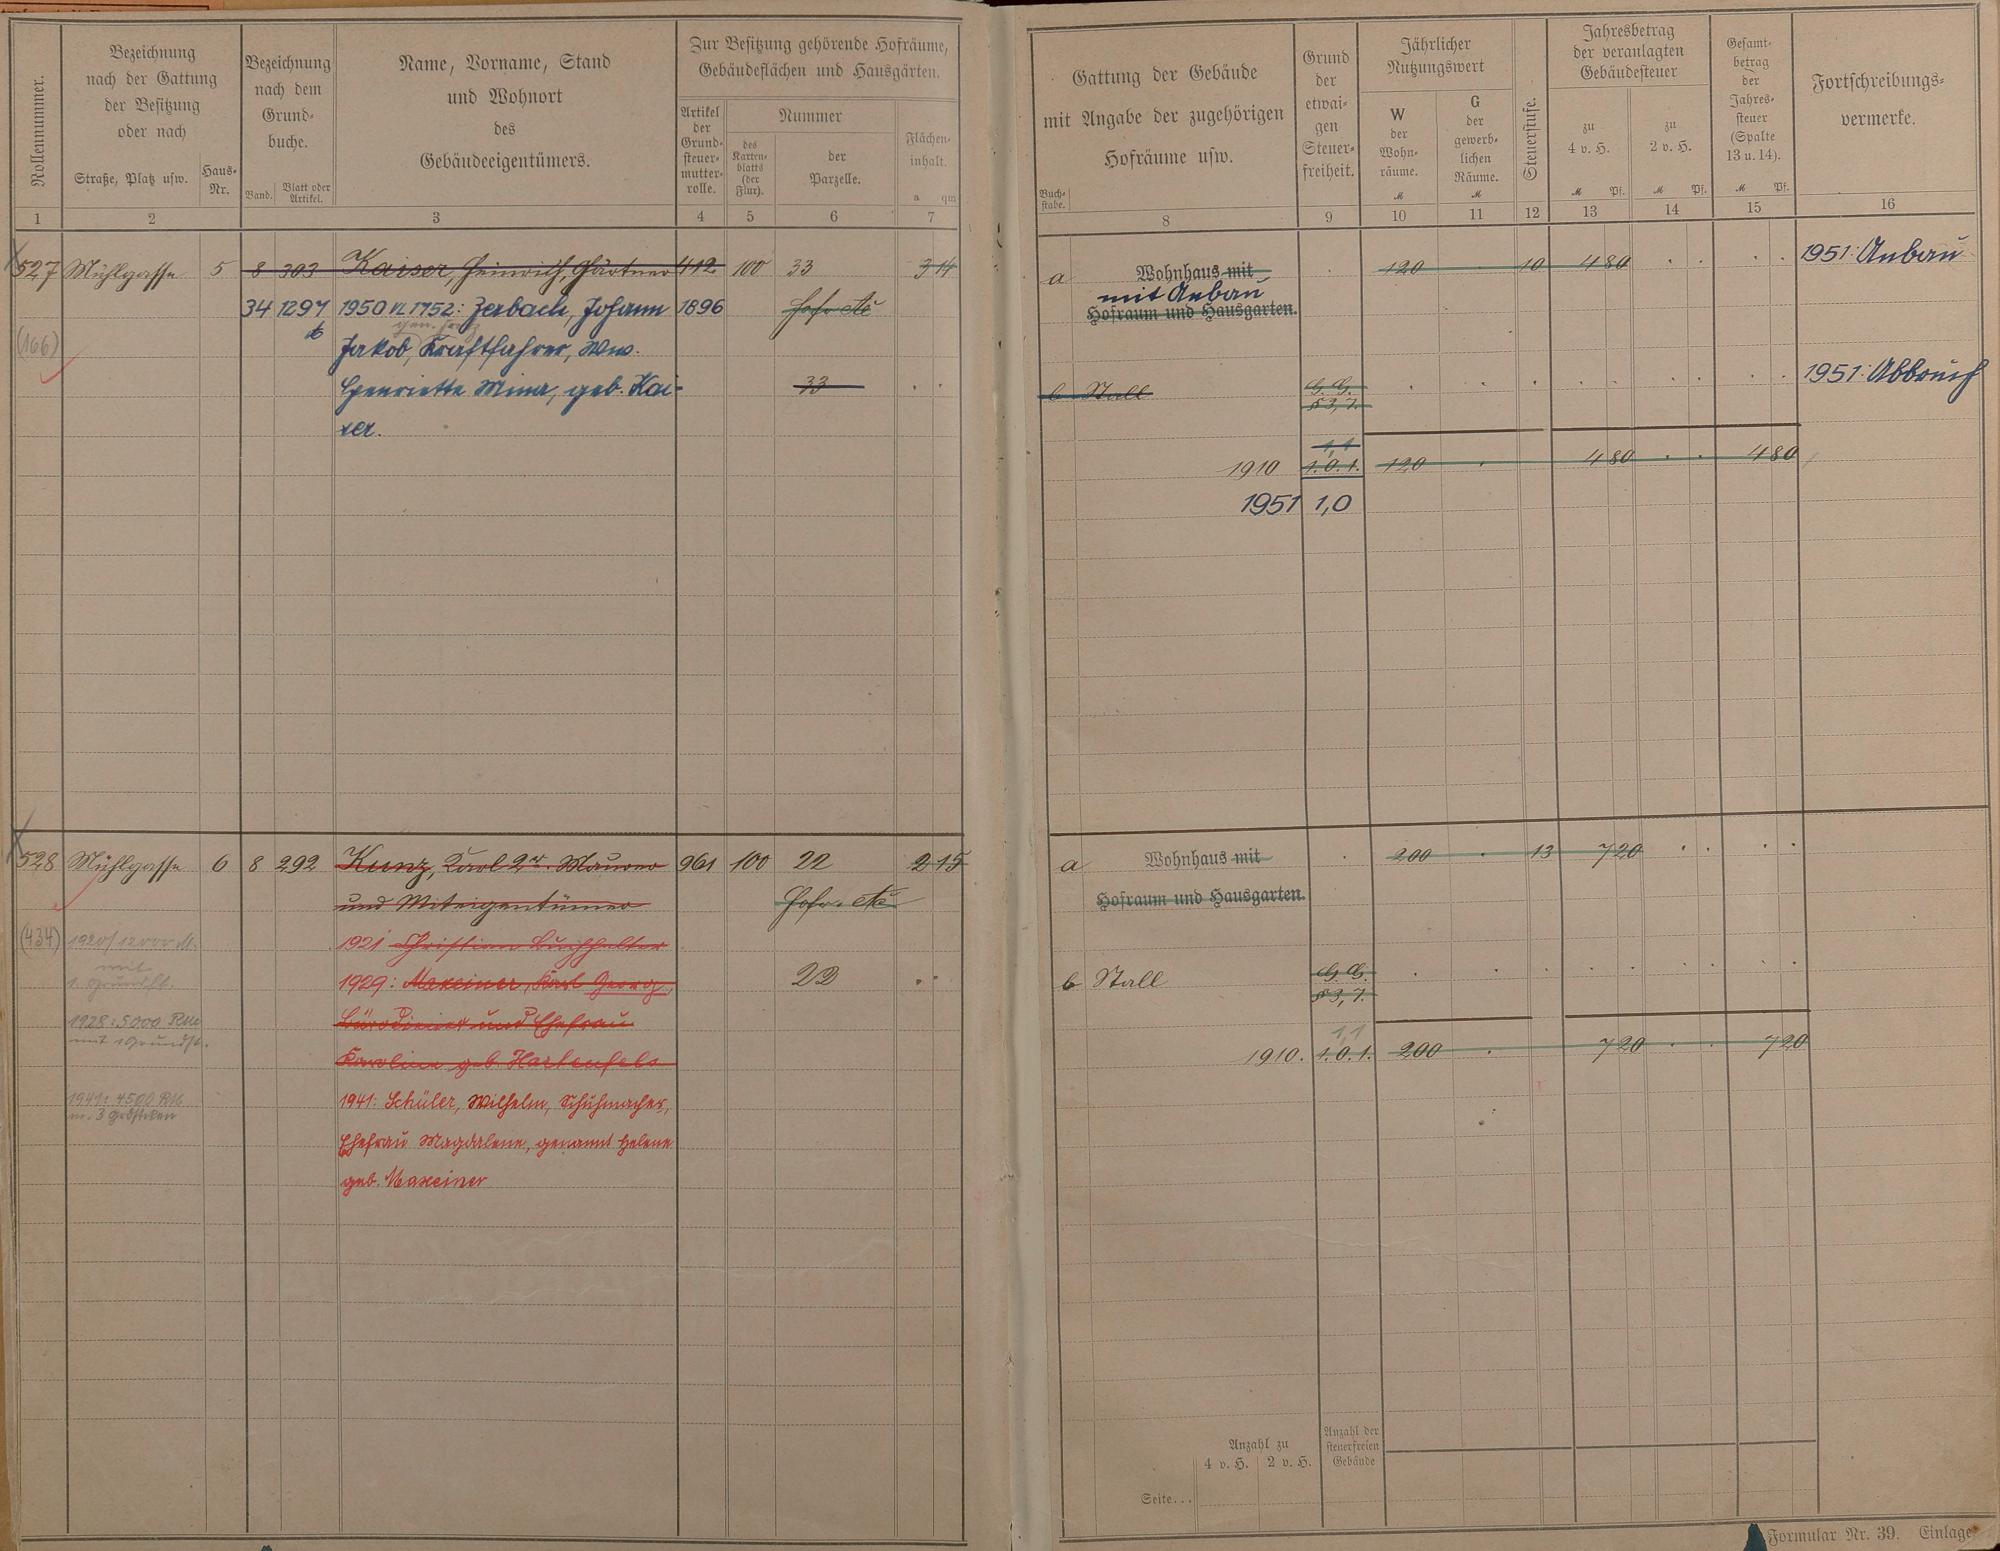 Rollennummer.
Bezeichnung
nach der Gattung
der Besitzung
oder nach
Straße, Platz usw.
Haus-
Nr.
Bezeichnung
nach dem
Grund-
buche.
Band.
Blatt oder
Artikel.
Name, Vorname, Stand
und Wohnort
des
Gebäudeeigentümers.
Zur Besitzung gehörende Hofräume,
Gebäudeflächen und Hausgärten.
Artikel
der
Grund-
steuer-
mutter-
rolle.
Nummer
des
Karten-
blatts
(der
Flur).
der
Parzelle.
Flächen-
inhalt.
a qm
1 2 3 4 5 6 7
527 Mühlgasse 5 8 303 Kaiser, Heinrich, Gärtner 412 100 33 3 14
34 1297 1950 VL 1752: Zerbach, Johann 1896 Hofr. etc
(166) Jakob, Kraftfahrer, Ww.
Henriette Mina, geb. Kai- 33
ser.
528 Mühlgasse 6 8 292 Kunz, Karl 2r. Maurer 961 100 22 2 15
und Miteigentümer Hofr. etc
(434) 1920/12000 M. 1921 Christian Buchhalter
mit
1. Grundst. 1929: Maxeiner, Karl Georg, 22
1928: 5000 RM Bürodiener und Ehefrau
mit 1 Grundst.
Karoline geb. Hartenfels
1941: 4500 RM 1941: Schüler, Wilhelm, Schuhmacher,
m. 3 Grdstcken
Ehefrau Magdalene, genannt Helene
geb. Maxeiner
Gattung der Gebäude
mit Angabe der zugehörigen
Hofräume usw.
Buch-
stabe.
Grund
der
etwai-
gen
Steuer-
freiheit.
Jährlicher
Nutzungswert
W
der
Wohn-
räume.
M
G
der
gewerb-
lichen
Räume.
M
Steuerstufe.
Jahresbetrag
der veranlagten
Gebäudesteuer
zu
4 v. H.
M Pf.
zu
2 v. H.
M Pf.
Gesamt-
betrag
der
Jahres-
steuer
(Spalte
13 u. 14).
M Pf.
Fortschreibungs-
vermerke.
8 9 10 11 12 13 14 15 16
a Wohnhaus mit 120 10 4 80 1951: Anbau
mit Anbau
Hofraum und Hausgarten.
b Stall G. G. 1951: Abbruch
§ 3, 7.
1,1
1910 1. 0. 1. 120 4 80 4 80
1951 1,0
a Wohnhaus mit 200 13 7 20
Hofraum und Hausgarten.
b Stall G. G.
§ 3, 7.
1,1
1910. 1. 0. 1. 200 7 20 7 20
Anzahl zu
4 v. H. 2 v. H.
Anzahl der
steuerfreien
Gebäude
Seite...
Formular Nr. 39. Einlage